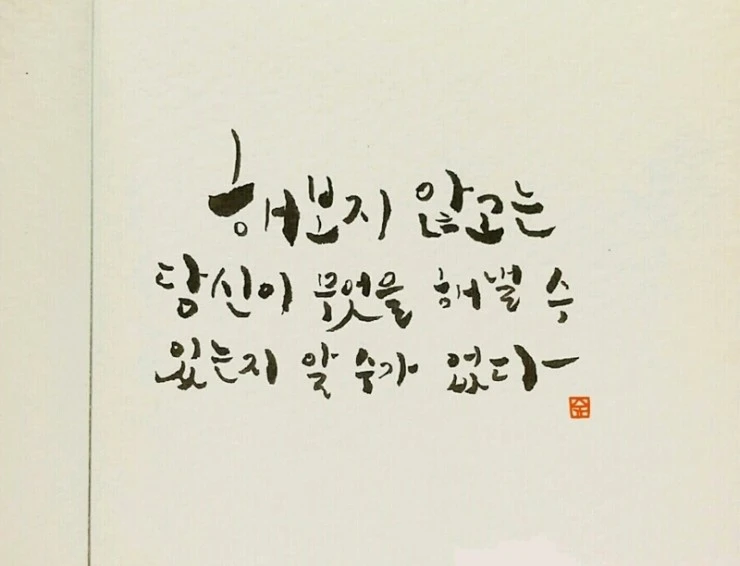 해보지 않고는
당신이 무엇을 해낼 수
있는지 알 수가 없다